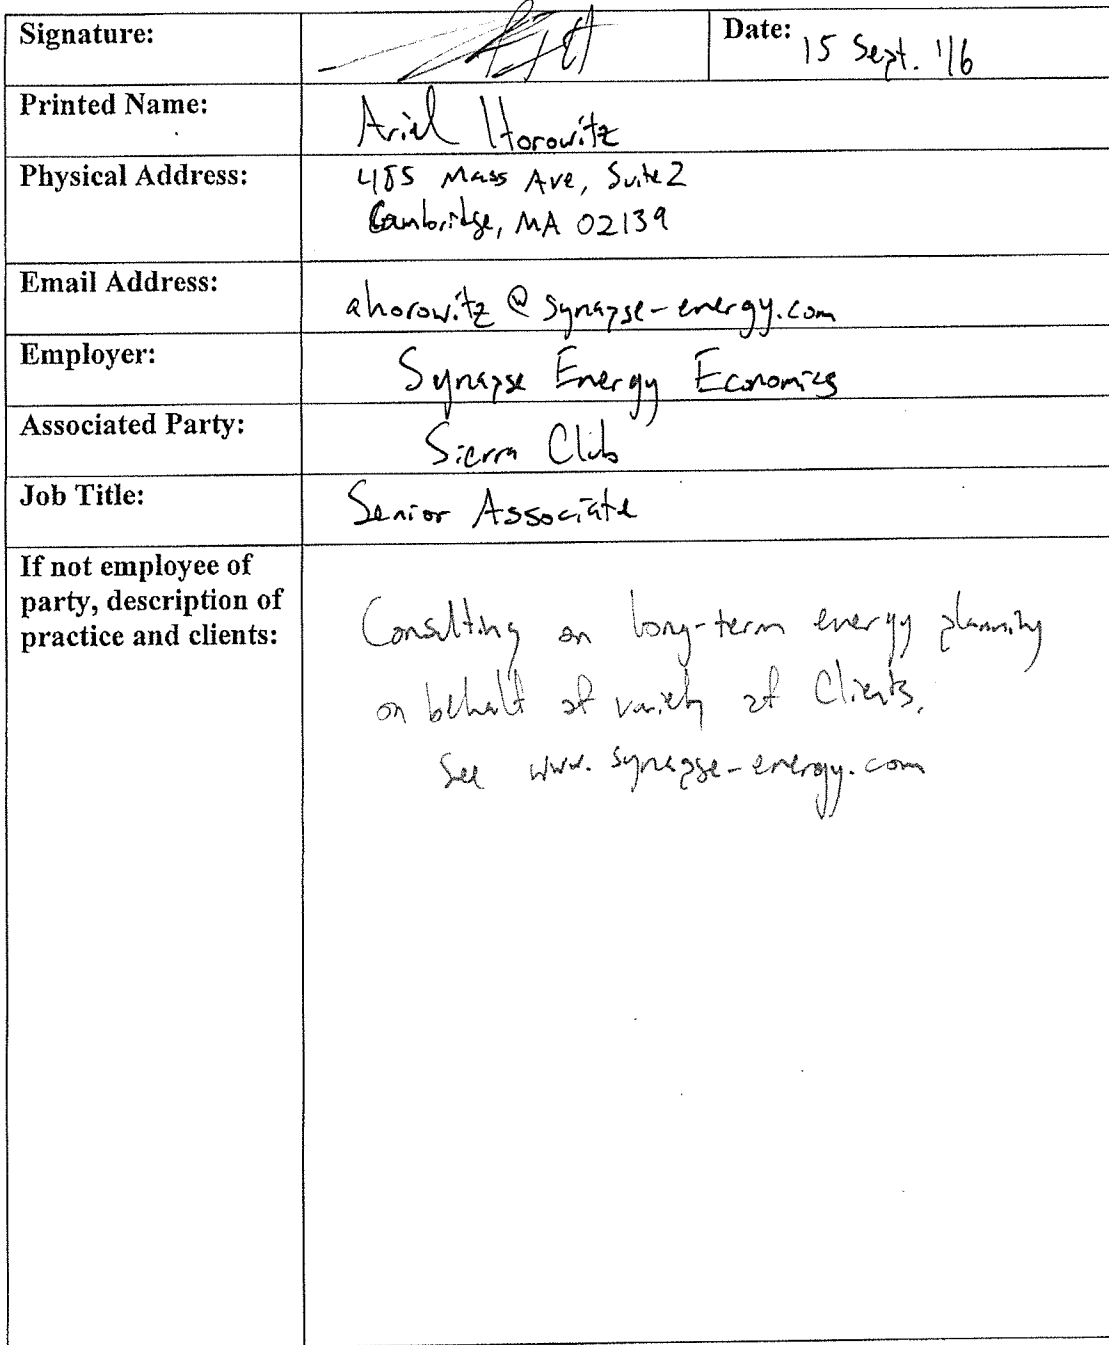 Signature:
Date: 15 Sept. '16
Printed Name: Ariel Horowitz
Physical Address: 485 Mass Ave, Suite 2
Cambridge, MA 02139
Email Address: ahorowitz@synapse-energy.com
Employer: Synapse Energy Economics
Associated Party: Sierra Club
Job Title: Senior Associate
If not employee of
party, description of
practice and clients:
Consulting on long-term energy planning
on behalf of variety of Clients.
See www.synapse-energy.com